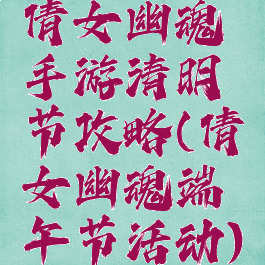 倩女幽魂
手游清明
节攻略(倩
女幽魂端
午节活动)